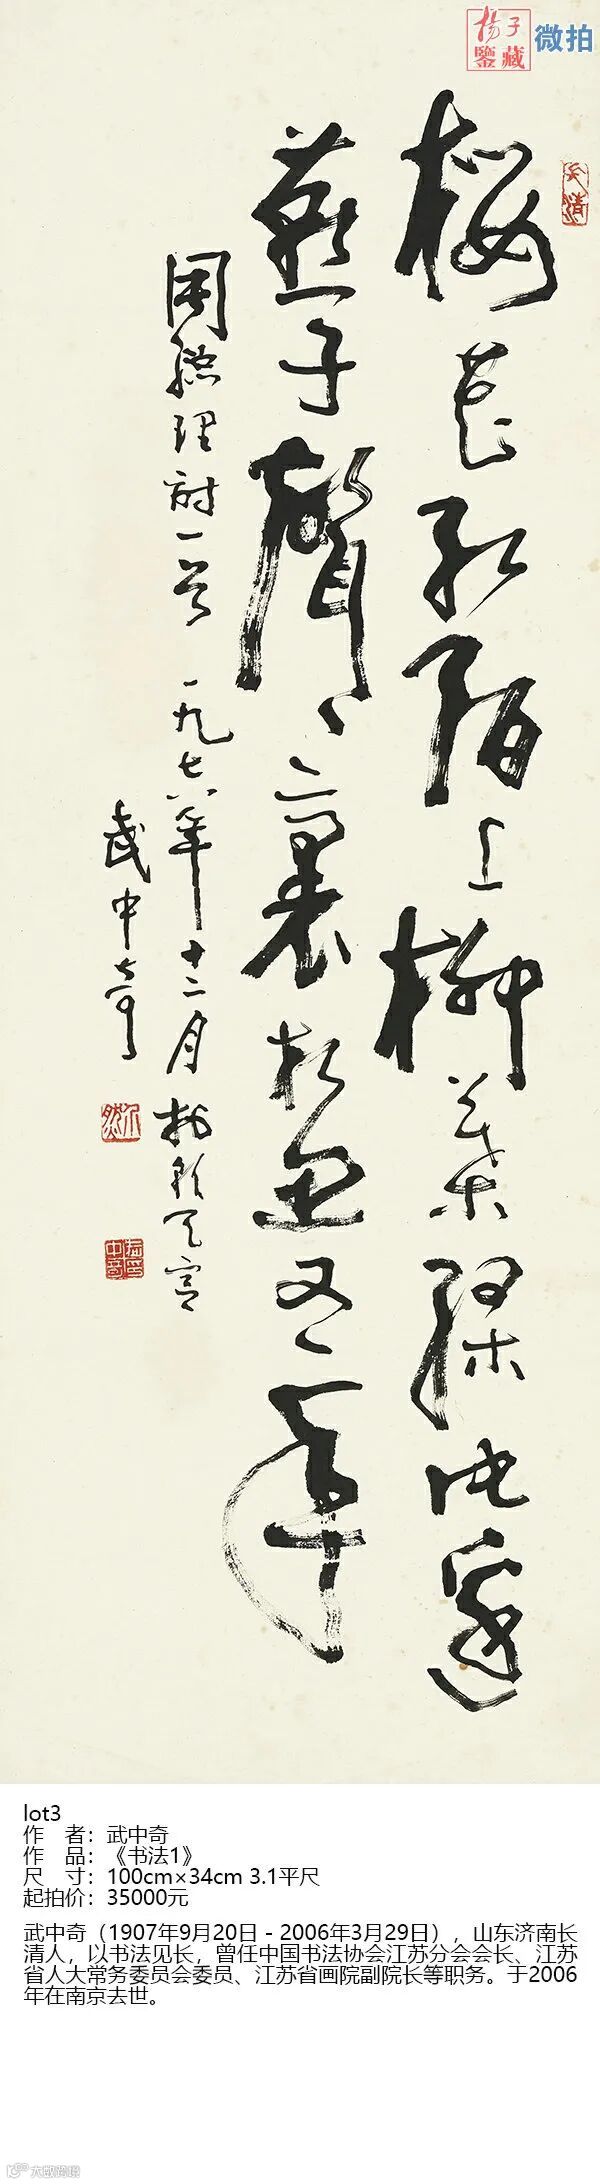 揚子
鑒藏
微拍
櫻花紅陌上柳葉綠池邊
燕子聲〻裏相思又一年
周總理詩一首 一九七 年十二月 於 天宫
武中奇
lot3
作 者：武中奇
作 品：《书法1》
尺 寸：100cm×34cm 3.1平尺
起拍价：35000元
武中奇（1907年9月20日－2006年3月29日），山东济南长
清人，以书法见长，曾任中国书法协会江苏分会会长、江苏
省人大常务委员会委员、江苏省画院副院长等职务。于2006
年在南京去世。
大数跨境